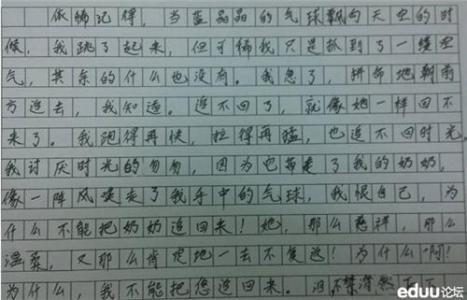 依稀记得,当蓝晶晶的气球飘向天空的时
候,我跳了起来,但可惜我只是抓到了一缕空
气,其余的什么也没有。我急了,拼命地朝前
方追去,我知道。追不回了,就像她一样回不
来了。我跑得再快,拉得再猛,也追不回时光。
我讨厌时光的匆匆,因为它带走了我的奶奶,
像一阵风带走了我手中的气球,我恨自己,为
什么不能把奶奶追回来!她,那么慈祥,那么
温柔,又那么肯定地一去不复返!为什么啊!
为什么,我不能把您追回来。泪不禁潸然而下
eduu论坛